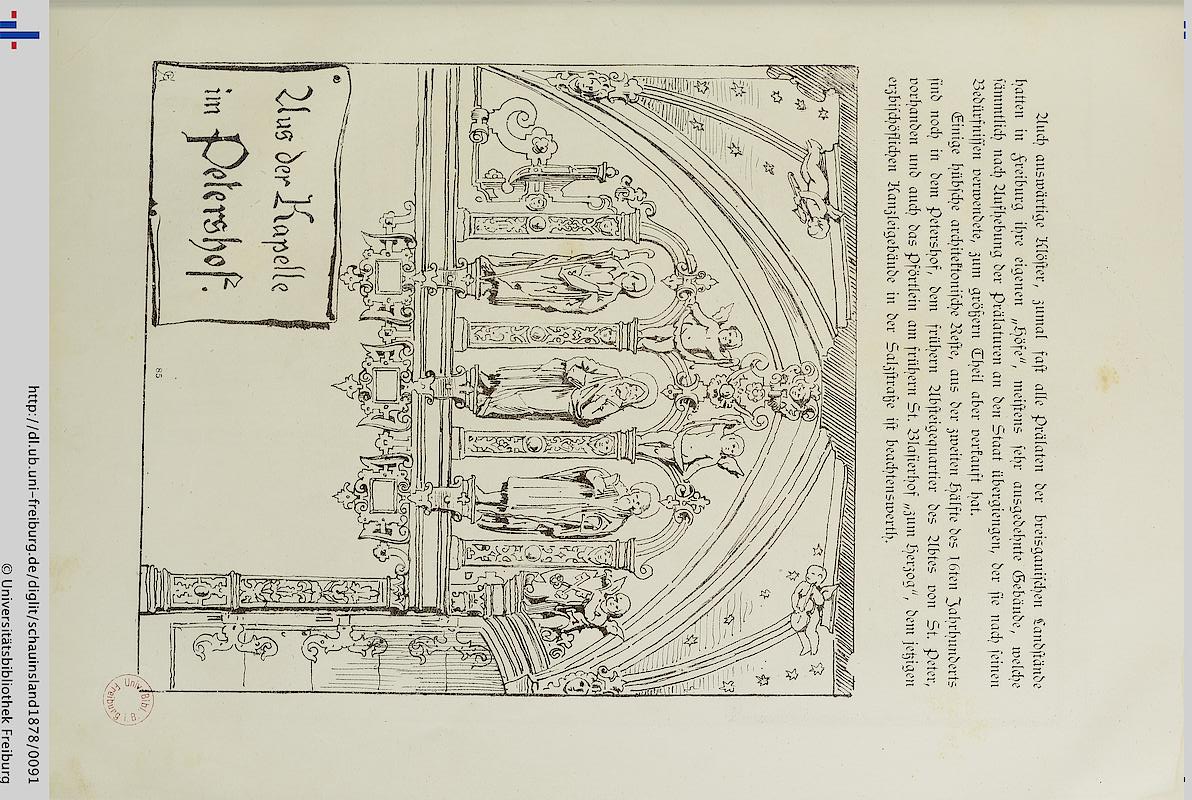 Auch auswärtige Klöster, zumal fast alle Prälaten der breisgauischen Landstände
hatten in Freiburg ihre eigenen „Höfe“, meistens sehr ausgedehnte Gebäude, welche
sämmtlich nach Aufhebung der Prälaturen an den Staat übergiengen, der sie nach seinen
Bedürfnissen verwendete, zum größern Theil aber verkauft hat.
Einige hübsche architektonische Reste, aus der zweiten Hälfte des 16ten Jahrhunderts
sind noch in dem Petershof, dem frühern Absteigequartier des Abtes von St. Peter,
vorhanden und auch das Pförtlein am frühern St. Blasierhof „zum Herzog“, dem jetzigen
erzbischöflichen Kanzleigebäude in der Salzstraße ist beachtenswerth.
Aus der Kapelle
im Petershof.
85
Univ. Bibl.
Freiburg i. B.
http://dl.ub.uni-freiburg.de/diglit/schauinsland1878/0091
© Universitätsbibliothek Freiburg